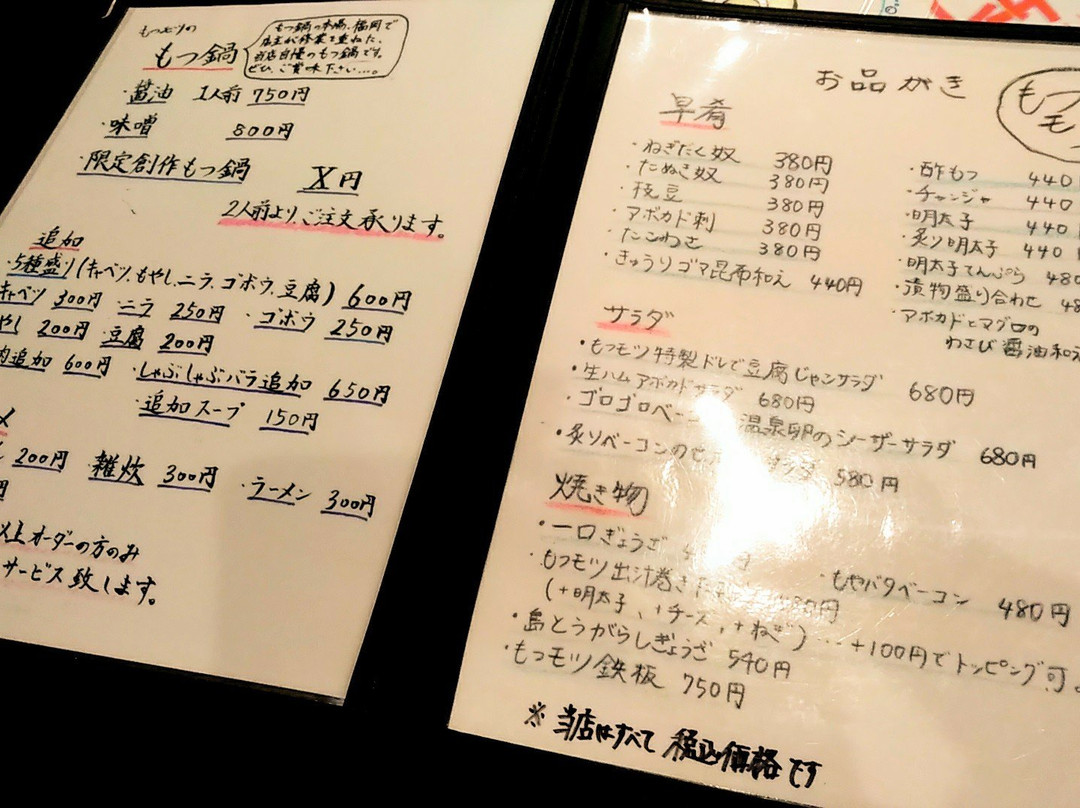 もつモツの
もつ鍋
もつ鍋の本場、福岡で
店主が修業を重ねた、
当店自慢のもつ鍋です。
ぜひ、ご賞味下さい...。
・醤油 1人前 750円
・味噌 800円
・限定創作もつ鍋 X円
2人前より、ご注文承ります。
追加
・5種盛り(キャベツ、もやし、ニラ、ゴボウ、豆腐) 600円
キャベツ 300円 ・ニラ 250円 ・ゴボウ 250円
やし 200円 ・豆腐 200円
肉追加 600円 ・しゃぶしゃぶバラ追加 650円
・追加スープ 150円
メ
200円 ・雑炊 300円 ・ラーメン 300円
円
以上オーダーの方のみ
サービス致します。
お品がき
もつ
モ
早肴
・ねぎだく奴 380円
・たぬき奴 380円
・枝豆 380円
・アボカド刺 380円
・たこわさ 380円
・きゅうりゴマ昆布和え 440円
・酢もつ 440
・チャンジャ 440
・明太子 440
・炙り明太子 440
・明太子てんぷら 480
・漬物盛り合わせ 48
・アボカドとマグロの
わさび醤油和え
サラダ
・もつモツ特製ドレで豆腐じゃこサラダ 680円
・生ハムアボカドサラダ 680円
・ゴロゴロベーコ 温泉卵のシーザーサラダ 680円
・炙りベーコンの サラダ 580円
焼き物
・一口ぎょうざ 円
・もつモツ出汁巻き 80円
(+明太子、+チーズ、+ねぎ)…+100円でトッピング可
・もやバタベーコン 480円
・島とうがらしぎょうざ 540円
・もつモツ鉄板 750円
※当店はすべて税込価格です